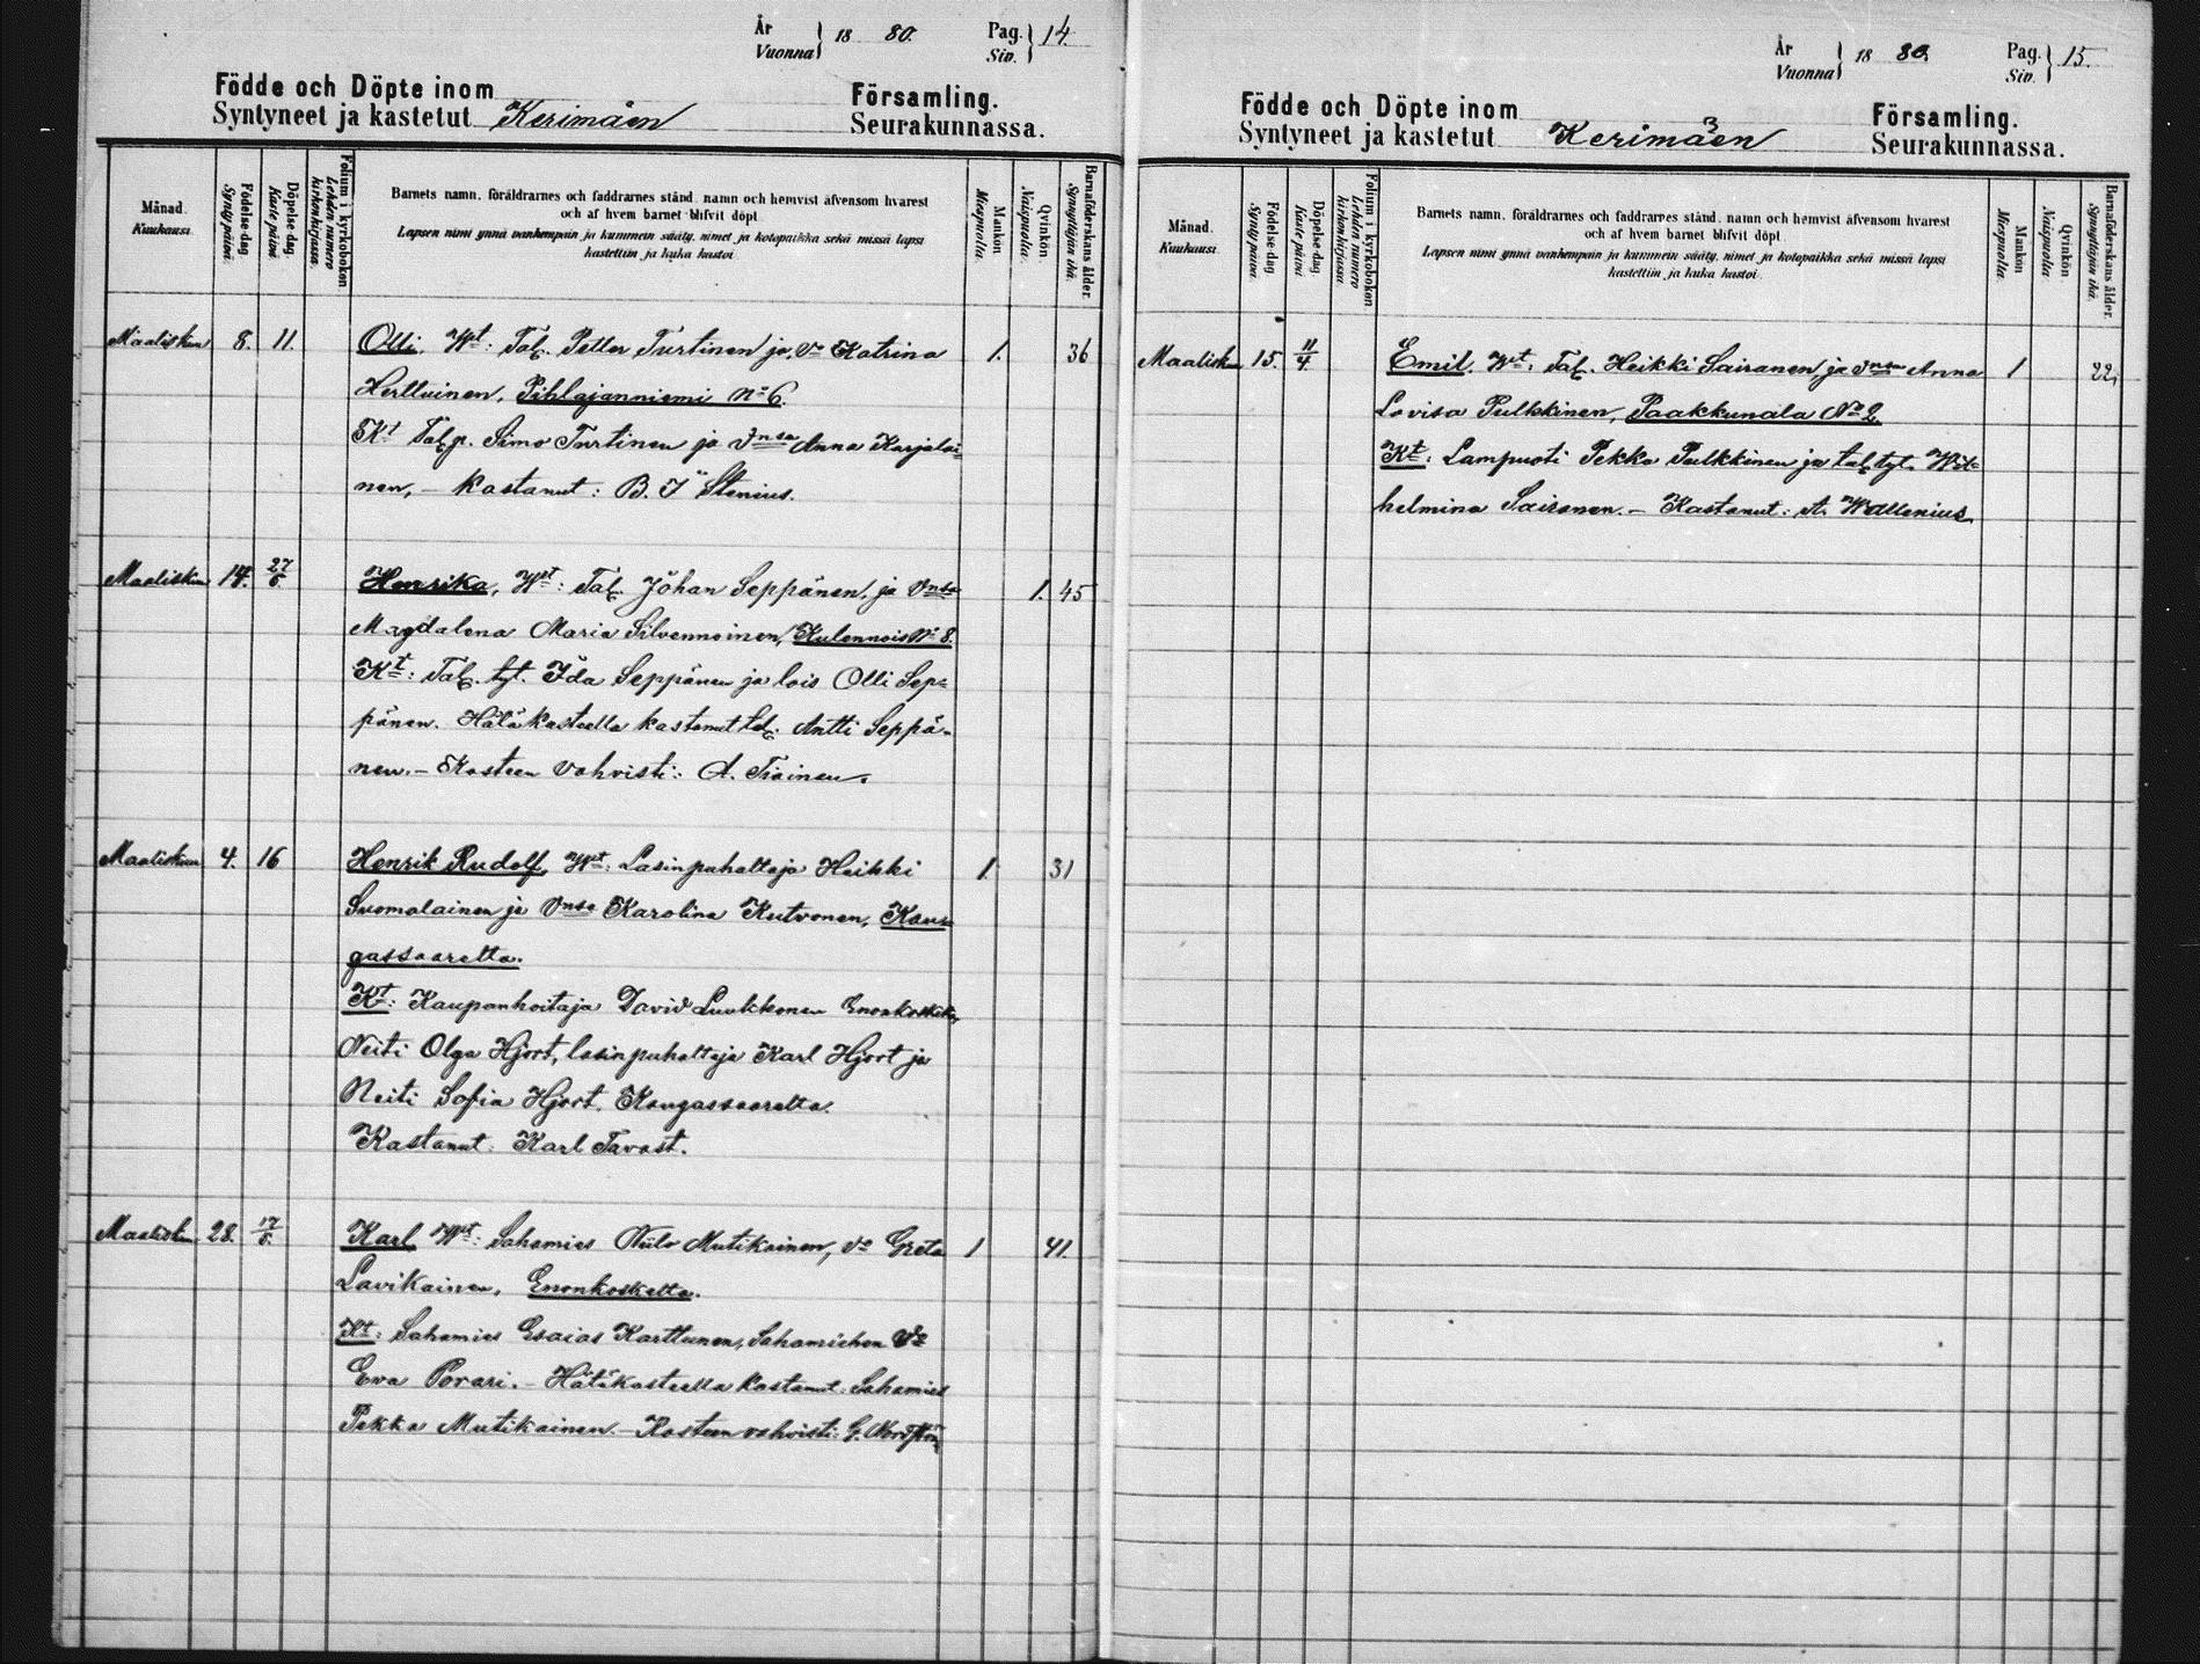 År
Vuonna } 18 80. Pag.
Siv. } 14.
Födde och Döpte inom Församling.
Syntyneet ja kastetut Kerimäen Seurakunnassa.
Månad.
Kuukausi.
Födelse dag.
Synty päivä.
Döpelse dag.
Kaste päivä.
Folium i kyrkoboken
Lehden numero
kirkonkirjassa.
Barnets namn, föräldrarnes och faddrarnes stånd, namn och hemvist äfvensom hvarest
och af hvem barnet blifvit döpt.
Lapsen nimi ynnä vanhempain ja kummein sääty, nimet ja kotopaikka sekä missä lapsi
kastettiin ja kuka kastoi
Mankön
Miespuolia.
Qvinkön
Naispuolia.
Barnaföderskans ålder.
Synnyttäjän ikä.
Maaliskuu 8. 11. Olli. Wt: Tal. Petter Turtinen ja Vo Katrina 1. 36
Herttuinen, Pihlajanniemi No 6.
Kt Talp. Simo Turtinen ja Vnsa Anna Karjalai=
nen, – Kastanut: B. J Stenius.
Maaliskuu 14. 27/5. Henrika, Wt: Tal. Johan Seppänen, ja Vnsa 1. 45
Magdalena Maria Silvennoinen, Kulennois No 8.
Kt: Tal. tyt. Ida Seppänen ja lois Olli Sep=
pänen. Hätäkasteella kastanut tal. Antti Seppä-
nen. – Kasteen vahvisti: A. Tiainen.
Maaliskuu 4. 16 Henrik Rudolf, Wt: Lasinpuhaltaja Heikki 1. 31
Suomalainen ja Vnsa Karolina Kutvonen, Kan=
gassaarelta.
Kt: Kaupanhoitaja David Luukkonen Enonkoskelta,
Neiti Olga Hjort, lasinpuhaltaja Karl Hjort ja
Neiti Sofia Hjort. Kangassaarelta.
Kastanut: Karl Tavast.
Maaliskuu 28. 17/5. Karl Wt: Sahamies Niilo Mutikainen, Vo Greta 1 41.
Lavikainen, Enonkoskelta.
Kt: Sahamies Esaias Karttunen, Sahamiehen Vo
Ewa Porari. – Hätäkasteella kastanut: Sahamies
Pekka Mutikainen. – Kasteen vahvisti: G.
År
Vuonna } 18 80. Pag.
Siv. } 15.
Födde och Döpte inom Församling.
Syntyneet ja kastetut Kerimäen Seurakunnassa.
Månad.
Kuukausi.
Födelse dag
Synty päivä.
Döpelse dag
Kaste päivä.
Folium i kyrkoboken
Lehden numero
kirkonkirjassa
Barnets namn, föräldrarnes och faddrarnes stånd, namn och hemvist äfvensom hvarest
och af hvem barnet blifvit döpt.
Lapsen nimi ynnä vanhempain ja kummein sääty, nimet ja kotopaikka sekä missä lapsi
kastettiin ja kuka kastoi.
Mankön
Miespuolia.
Qvinkön
Naispuolia.
Barnaföderskans ålder.
Synnyttäjän ikä.
Maalisk. 15. 11/4. Emil. Wt: Tal. Heikki Sairanen ja Vnsa Anna 1 22,
Lovisa Pulkkinen, Paakkunala No 2.
Kt: Lampuoti Pekka Pulkkinen ja tal. tyt. Wil=
helmina Sairanen. – Kastanut: A. Wallenius.